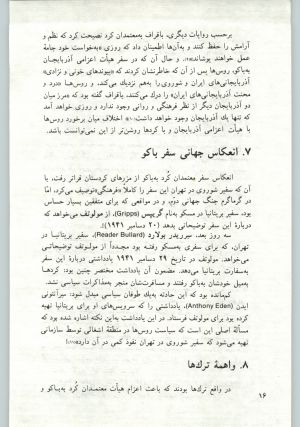 برحسب روایات دیگری، باقراف به‌معتمدان کرد نصیحت کرد که نظم و
آرامش را حفظ کنند و به‌آن‌ها اطمینان داد که روزی «به‌خواست خود جامهٔ
عمل خواهند پوشاند»۳. و حال آن که در سفر هیأت اعزامی آذربایجان
به‌باکو، روس‌ها پس از آن که خاطرنشان کردند که «پیوندهای خونی و نژادی»
آذربایجانی‌های ایران و شوروی را به‌هم نزدیك می‌کند، و روس‌ها «درد و
محنت آذربایجانی‌های ایران» را درك می‌کنند، باقراف گفته بود که «مرز میان
دو آذربایجان دیگر از نظر فرهنگی و روانی وجود ندارد و روزی خواهد آمد
که تنها یك آذربایجان وجود خواهد داشت.» اختلاف میان برخورد روس‌ها
با هیأت اعزامی آذربایجان و با کردها روشن‌تر از این نمی‌توانست باشد.
۷. انعکاس جهانی سفر باکو
انعکاس سفر معتمدان کُرد به‌باکو از مرزهای کردستان فراتر رفت، با
آن که سفیر شوروی در تهران این سفر را کاملاً «فرهنگی» توصیف می‌کرد، امّا
در گرماگرم جنگ جهانی دوّم، و در مواقعی که برای متفقین بسیار حساس
بود، سفیر بریتانیا در مسکو به‌نام گریپس (Gripps)، از مولوتف می‌خواهد که
دربارهٔ این سفر توضیحاتی بدهد (۲۰ دسامبر ۱۹۴۱).
سه روز بعد، سرریدر بولارد (Reader Bullard)، سفیر بریتانیا در
تهران، که برای سفری به‌مسکو رفته بود مجدداً از مولوتف توضیحاتی
می‌خواهد. مولوتف در تاریخ ۲۹ دسامبر ۱۹۴۱ یادداشتی دربارهٔ این سفر
به‌سفارت بریتانیا می‌دهد. مضمون آن یادداشت مختصر چنین بود: کردها
به‌میل خودشان به‌باکو رفتند و مسافرت‌شان منجر به‌مذاکرات سیاسی نشد.
کم‌مانده بود که این حادثه به‌یك طوفان سیاسی مبدل شود: سرآنتونی
ایدن (Anthony Eden)، یادداشتی را که سرویس‌های او برای بریتانیا تهیه
کرده بود برای مولوتف فرستاد. در این یادداشت به‌این نکته اشاره شده بود که
مسألهٔ اصلی این است که سیاست روس‌ها در منطقهٔ اشغالی توسط سازمانی
تهیه می‌شود که سفیر شوروی در تهران نفوذ کمی در آن دارد
۸. واهمهٔ ترك‌ها
در واقع ترك‌ها بودند که باعث اعزام هیأت معتمدان کُرد به‌باکو و
۱۶